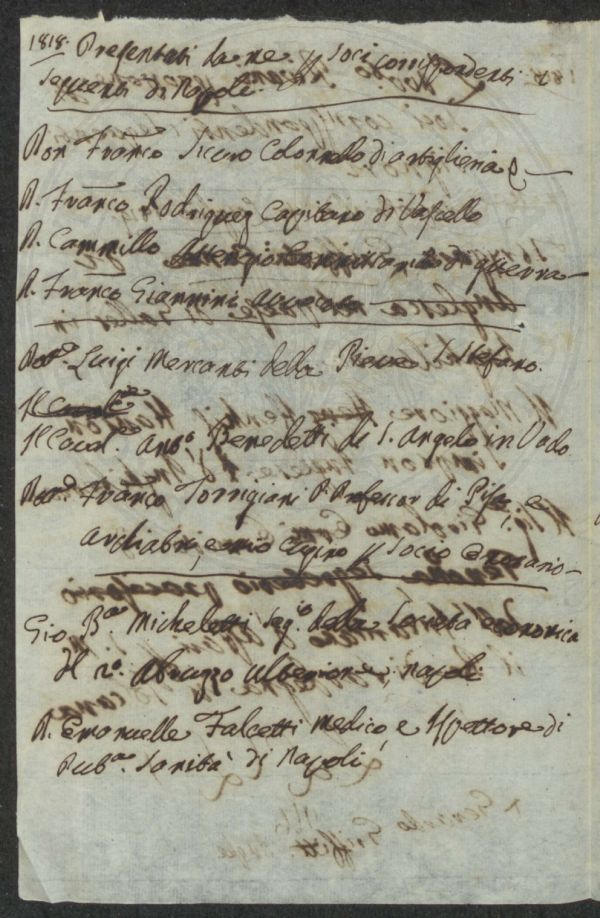 1818. Presentati da me Soci corrispondenti
seguenti di Napoli.
Don Franco Sicuro Colonnello di artiglieria
D. Franco Rodriguez Capitano di Vascello
D. Cammillo Commissario di guerra
D. Franco Giannini avvocato
Luigi Mercanti della Pieve S. Stefano.
Il Caval.e
Il Caval.e Ant.o Benedetti di S. Angelo in Vado
Franco Torrigiani P. Professor di Pisa e
e mio Socio
Gio. B.a Micheletti Seg.o della Società economica
Il 2.o Abruzzo Ulteriore, Napoli
D. Emanuelle Falcetti Medico e Ispettore di
Pub.a Sanità di Napoli